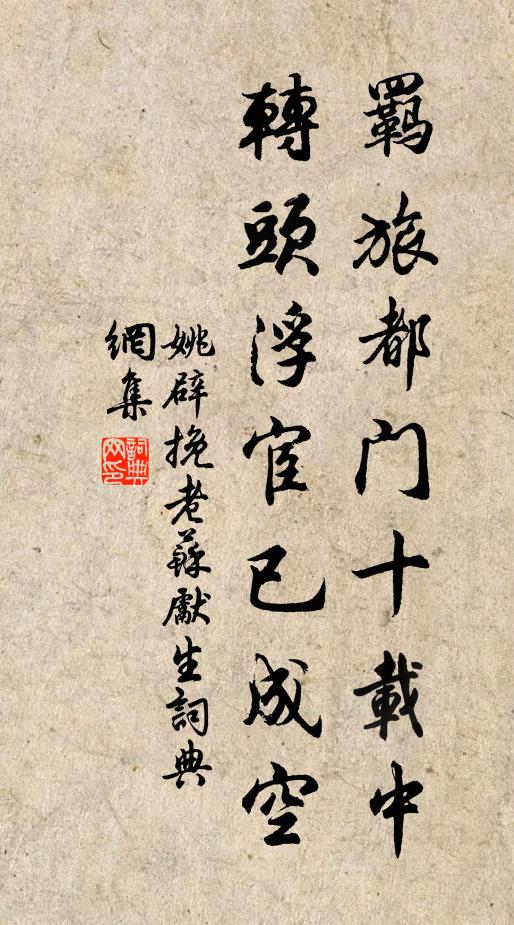 羈旅都門十載中
轉頭浮宦已成空
姚辟挽老蘇獻生詞典
網集
詞典
网印